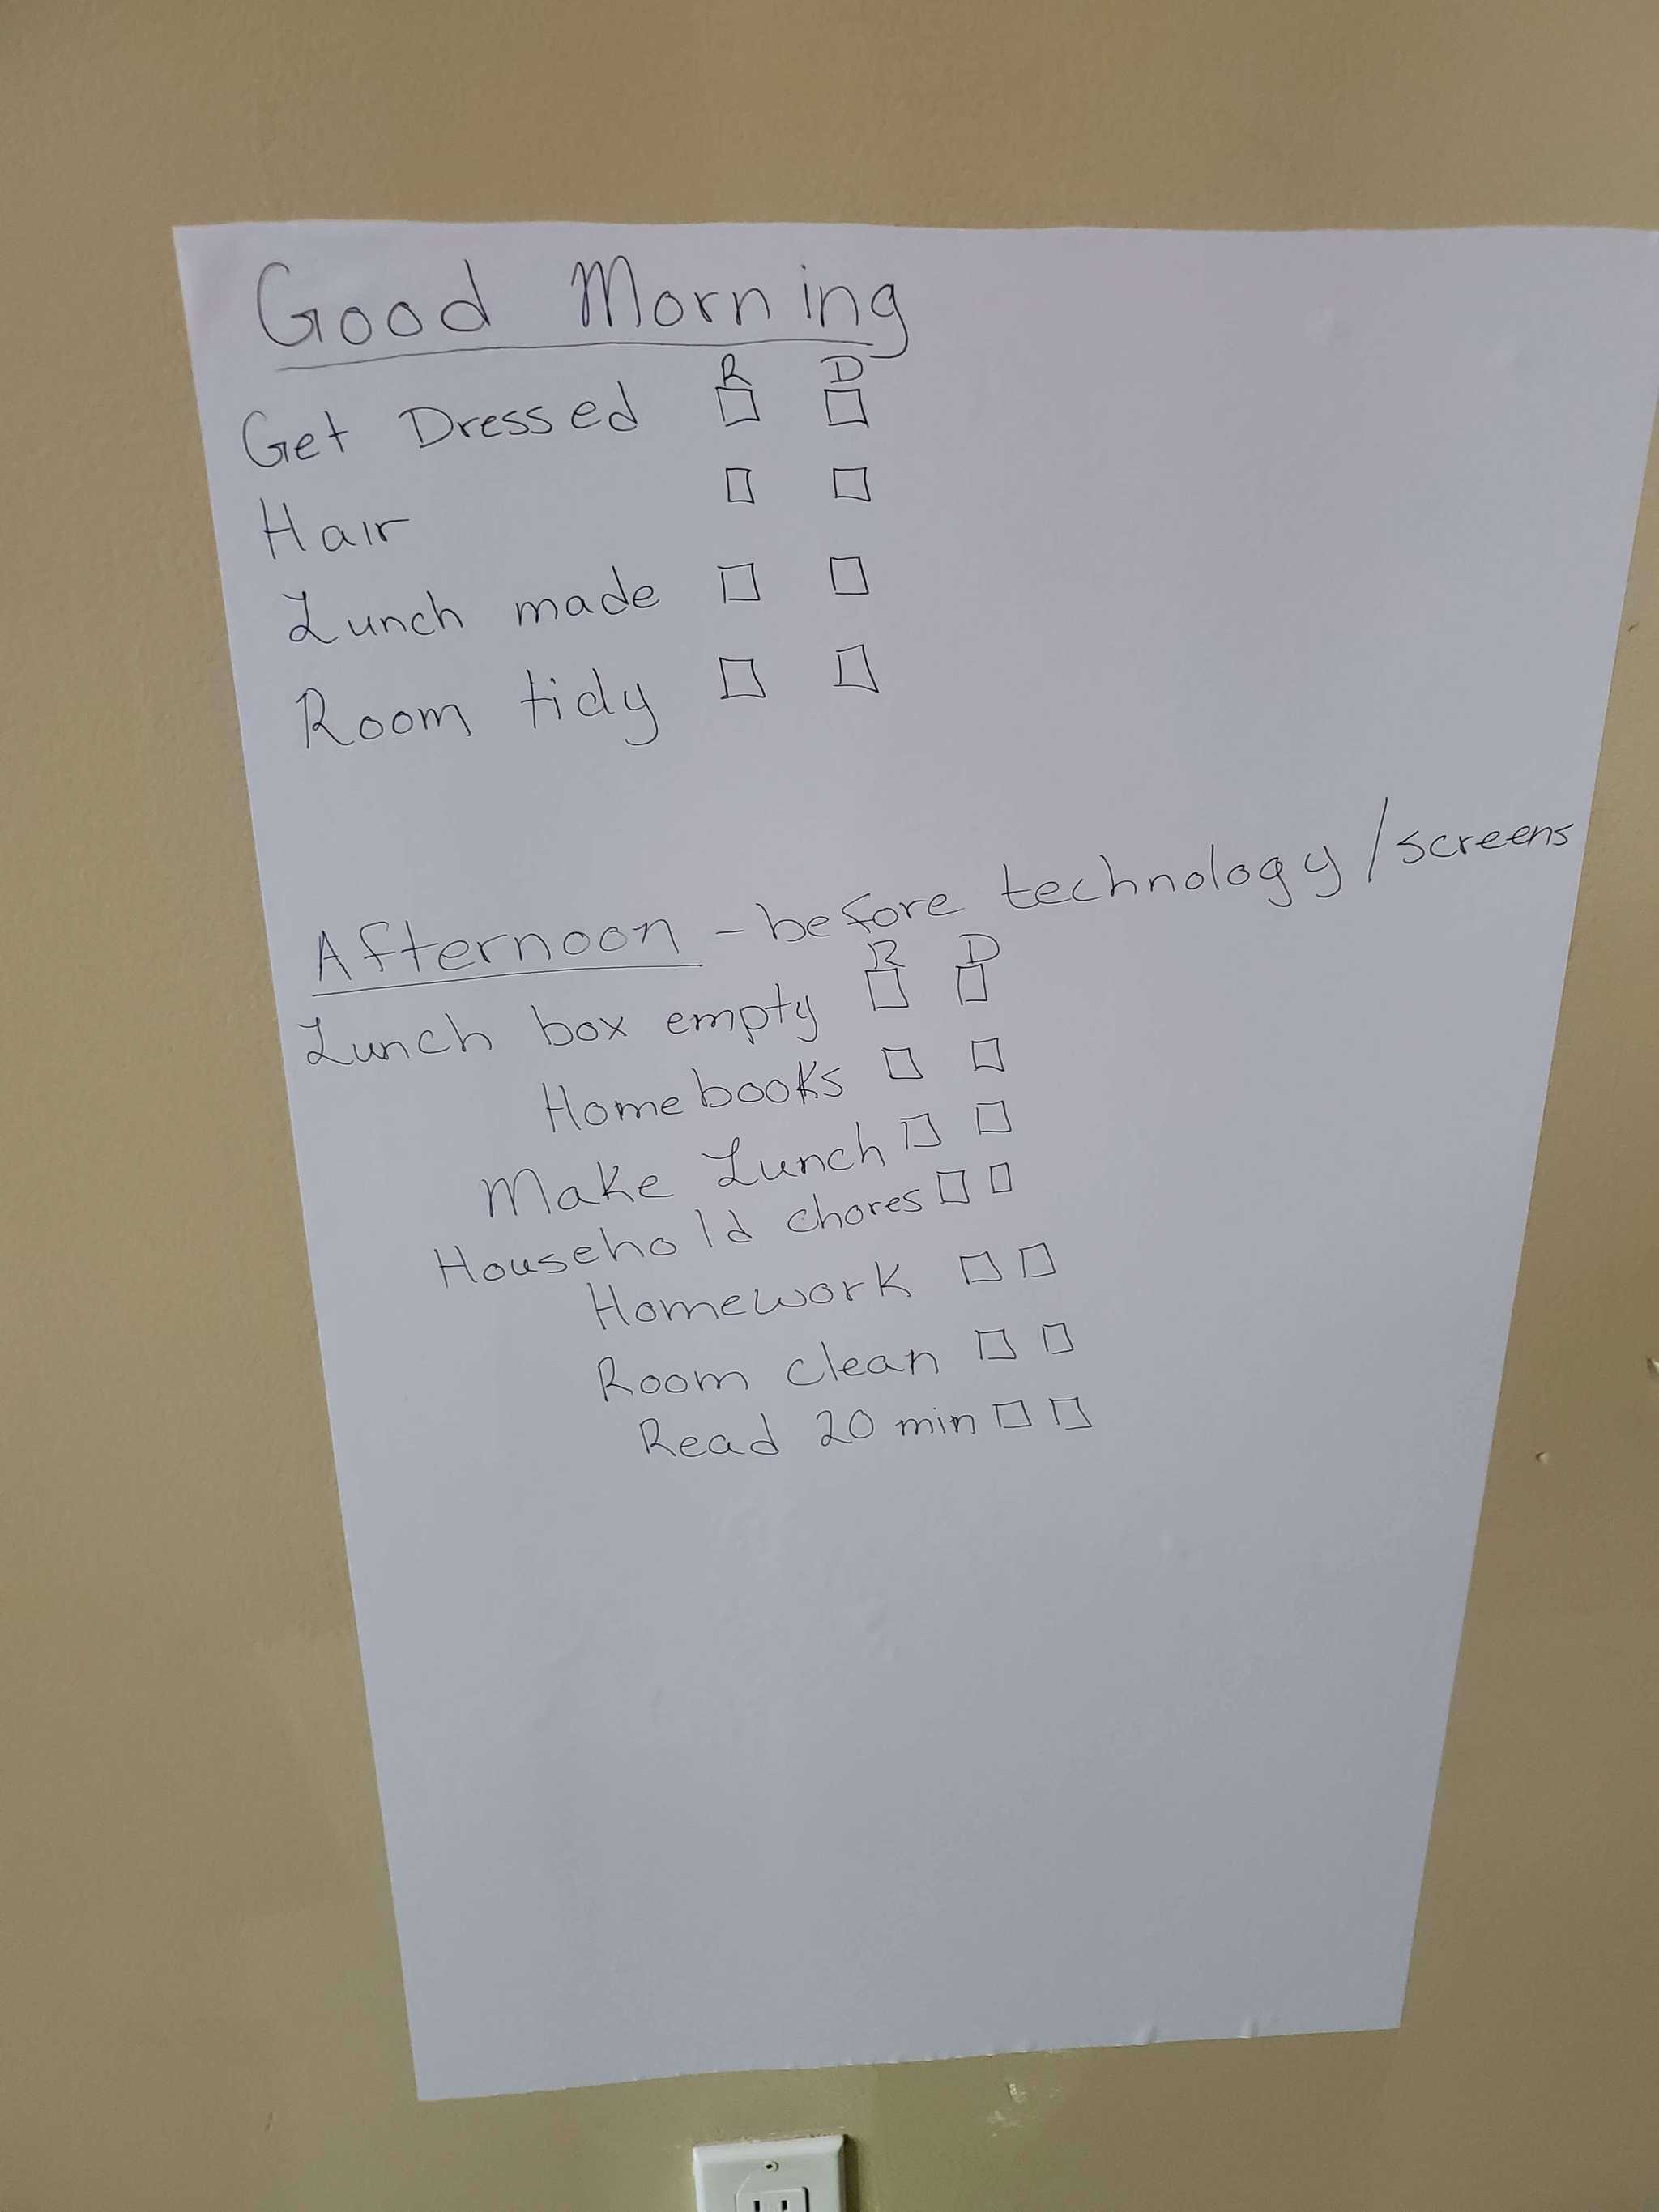 Good Morning
R D
Get Dressed □ □
Hair □ □
Lunch made □ □
Room tidy □ □
Afternoon - before technology/screens
R D
Lunch box empty □ □
Homebooks □ □
Make Lunch □ □
Household chores □ □
Homework □ □
Room clean □ □
Read 20 min □ □